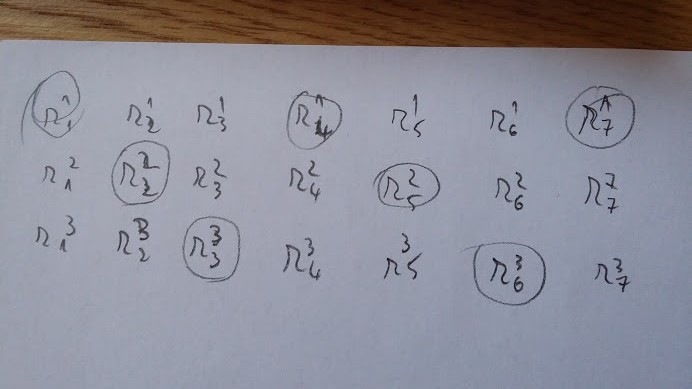 r₁¹ r₂¹ r₃¹ r₄¹ r₅¹ r₆¹ r₇¹
r₁² r₂² r₃² r₄² r₅² r₆² r₇⁷
r₁³ r₂³ r₃³ r₄³ r₅³ r₆³ r₇³